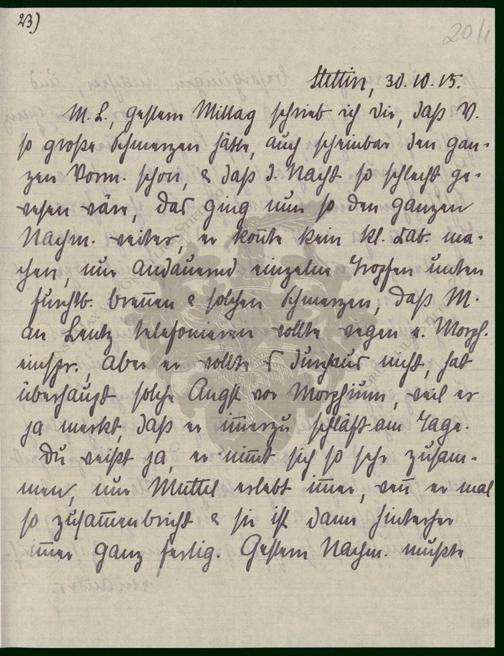 23)
20/1
Stettin, 30.10.15.
M. L., gestern Mittag schrieb ich Dir, daß V.
so große Schmerzen hätte, auch scheinbar den gan-
zen Vorm. schon, & daß d. Nacht so schlecht ge-
wesen wäre, das ging nun so den ganzen
Nachm. weiter, er konnte kein kl. Lab. ma-
chen, nur andauernd einzelne Tropfen unter
furchtb. Brennen & solchen Schmerzen, daß M.
an Lentz telefonieren wollte wegen e. Morph.
einspr. Aber er wollte durchaus nicht, hat
überhaupt solche Angst vor Morphium, weil er
ja merkt, daß er immerzu schläft am Tage.
Du weißt ja, er nimmt sich so sehr zusam-
men, nur Muttel erlebt immer, wenn er mal
so zusammenbricht & sie ist dann hinterher
immer ganz fertig. Gestern Nachm. mußte